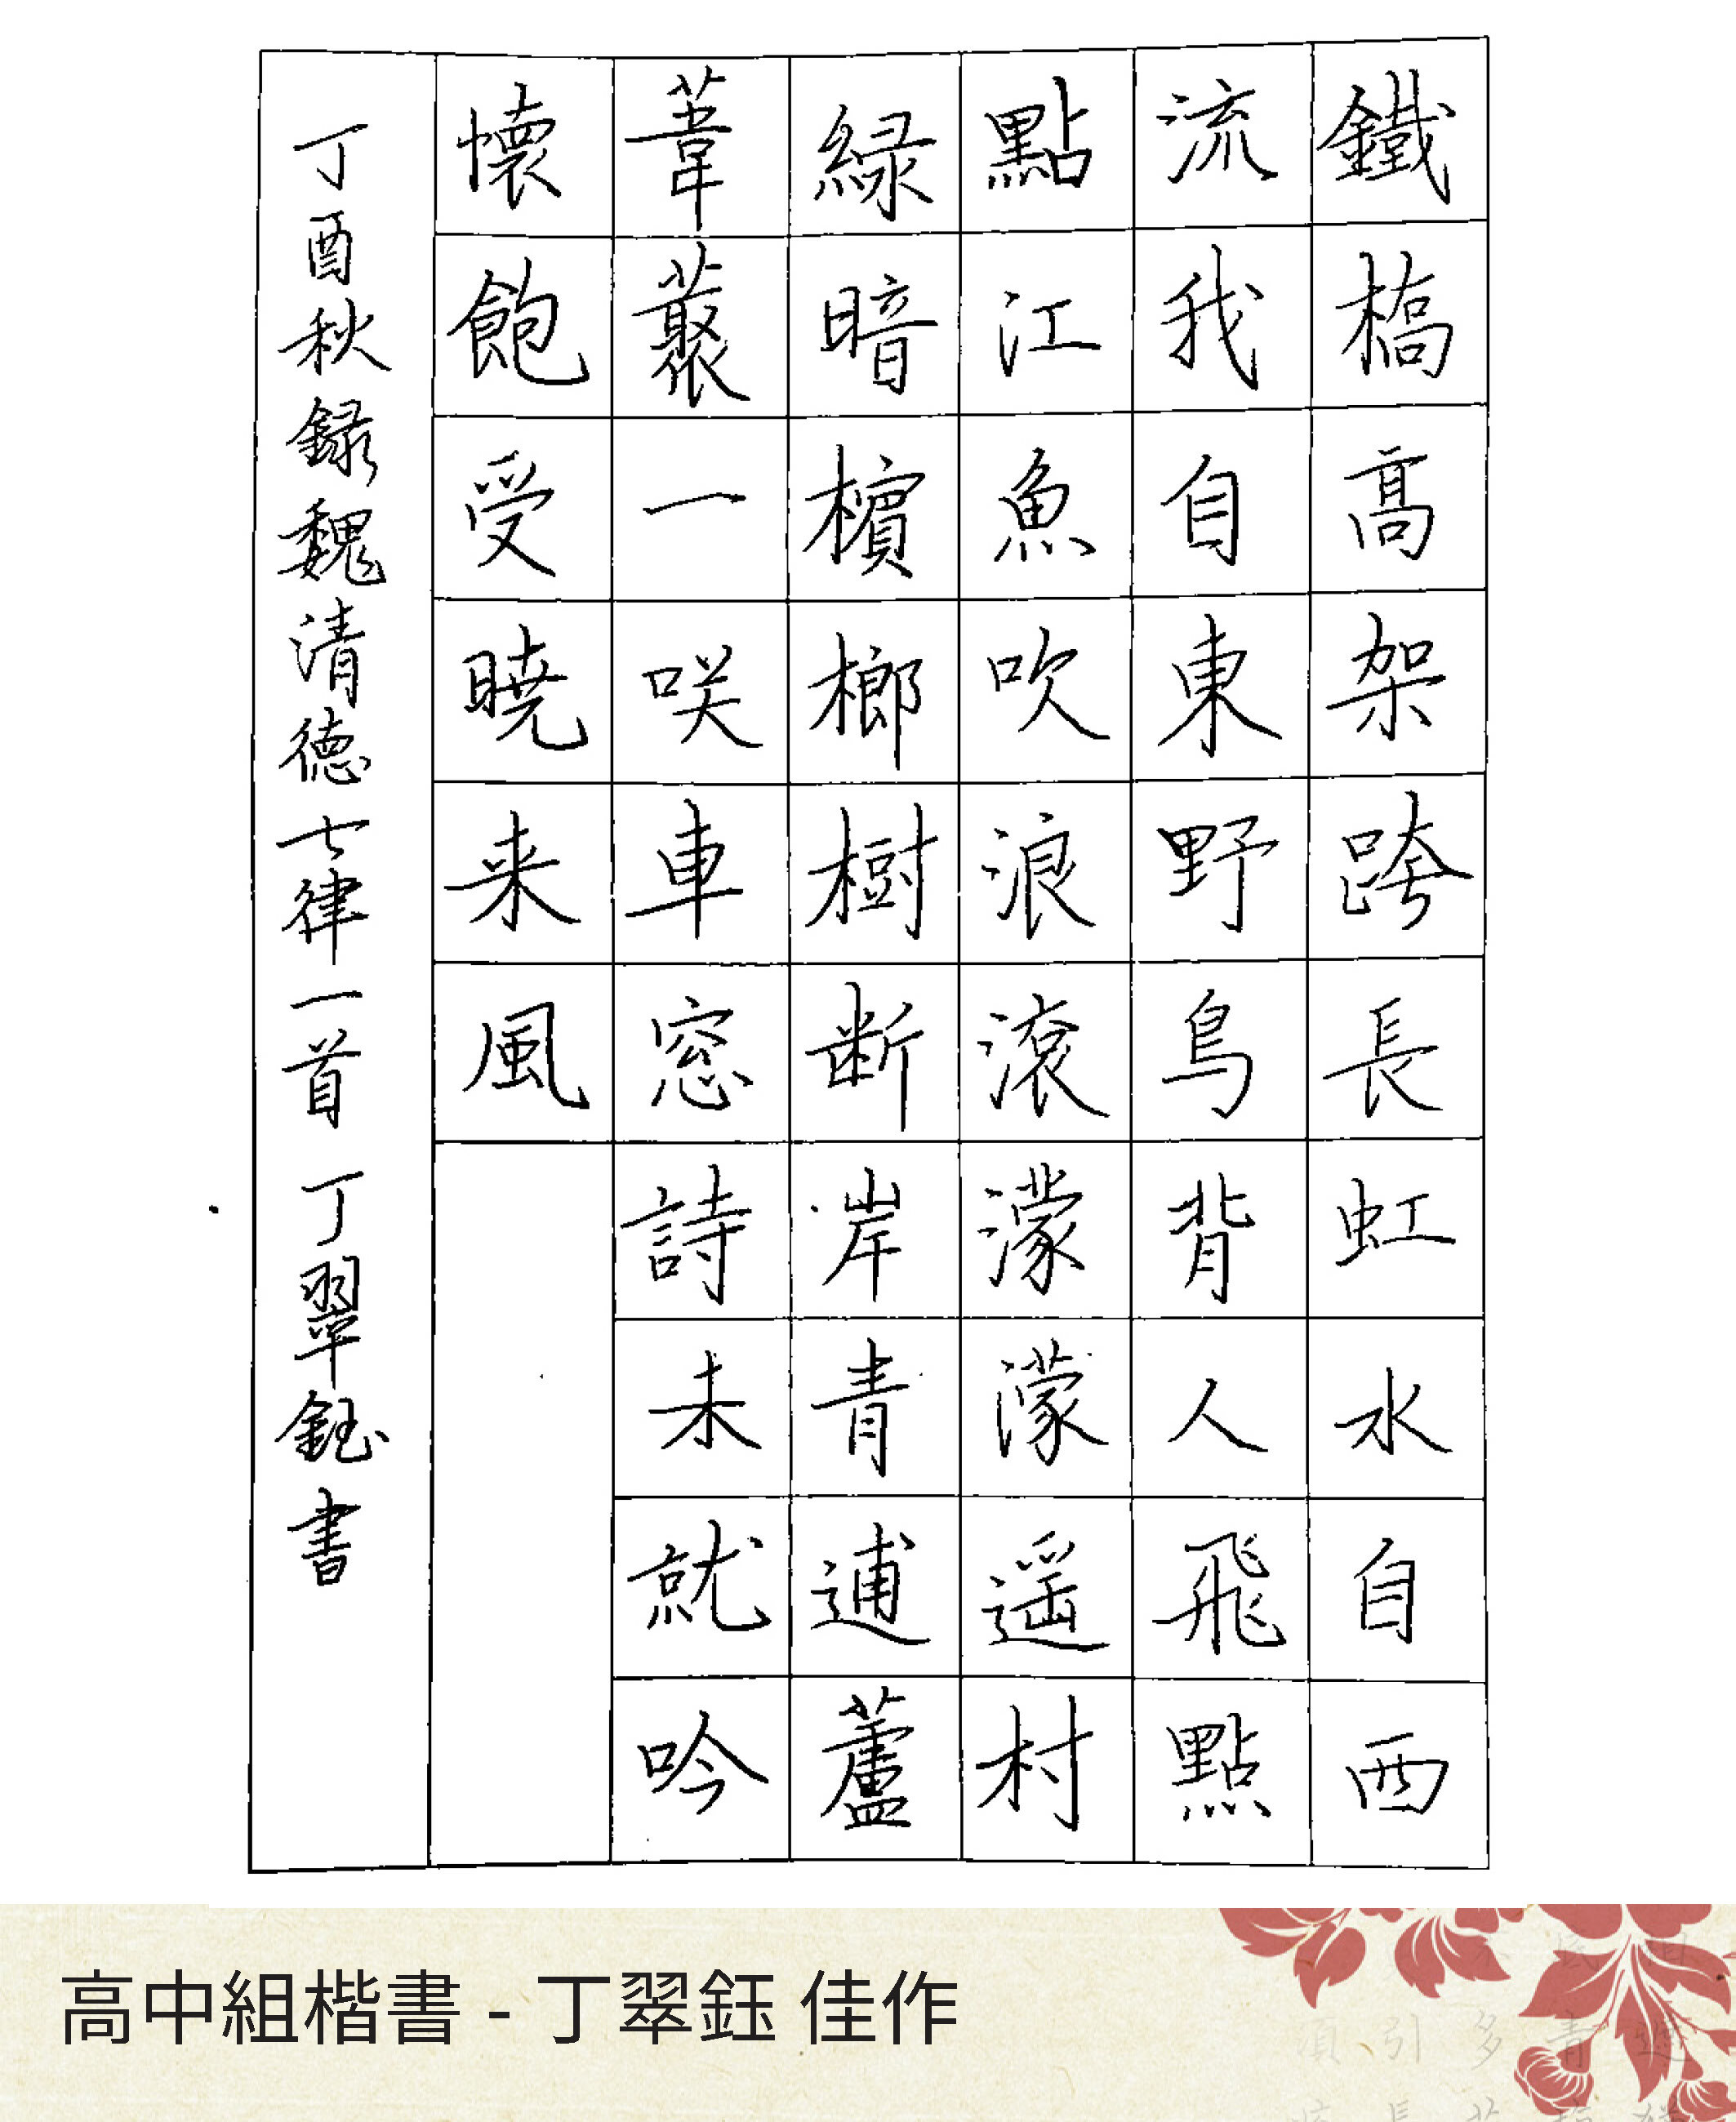 鐵橋高架跨長虹水自西
流我自東野鳥背人飛點
點江魚吹浪滾濛濛遥村
緑暗檳榔樹断岸青逋蘆
葦叢一咲車窓詩未就吟
懷飽受曉来風
丁酉秋録魏清德七律一首 丁翠鈺書
高中組楷書 - 丁翠鈺 佳作